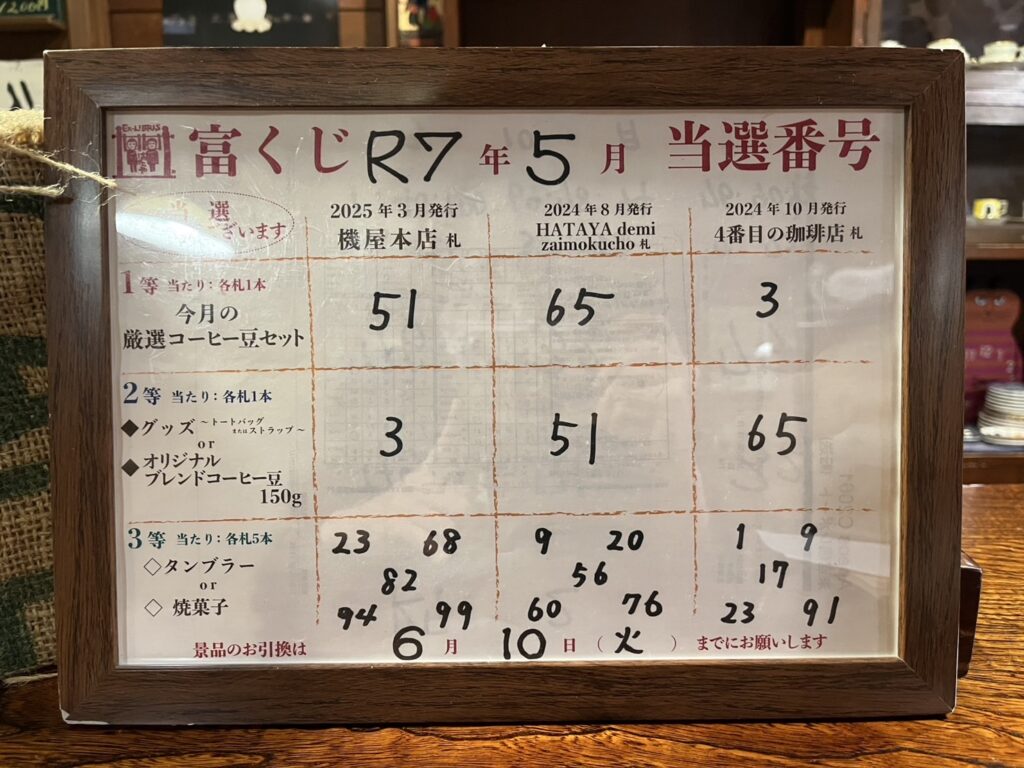 EX-LIBRIS
富くじ R7年 5月 当選番号
当選
ざいます
2025年3月発行
機屋本店 札
2024年8月発行
HATAYA demi
zaimokucho 札
2024年10月発行
4番目の珈琲店 札
1等 当たり：各札1本
今月の
厳選コーヒー豆セット
51 65 3
2等 当たり：各札1本
◆グッズ ～トートバッグ
またはストラップ～
or
◆オリジナル
ブレンドコーヒー豆
150g
3 51 65
3等 当たり：各札5本
◇タンブラー
or
◇ 焼菓子
23 68
82
94 99
9 20
56
60 76
1 9
17
23 91
景品のお引換は 6月 10日（火）までにお願いします